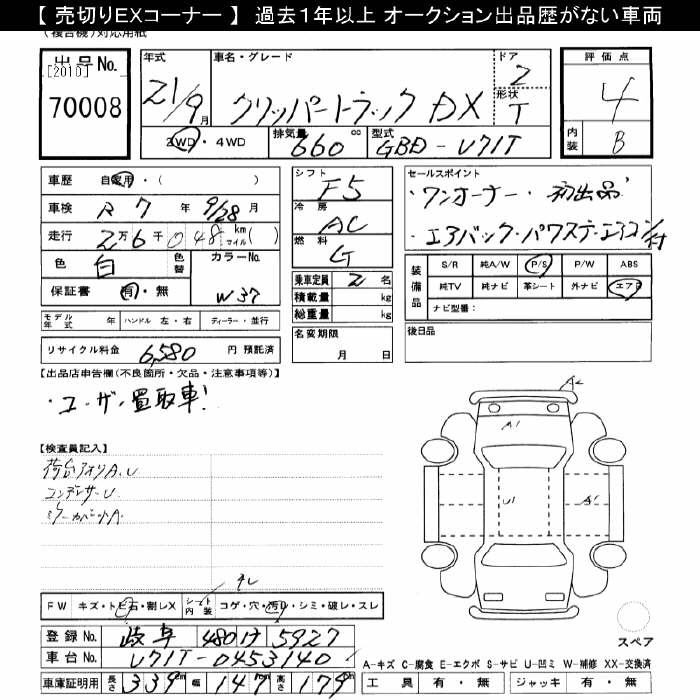 【 売切りEXコーナー 】 過去１年以上 オークション出品歴がない車両
(複合機)対応用紙
出品No.
[2010]
70008
年式 21/9月
車名・グレード クリッパートラック DX
ドア 2
形状 T
評価点 4
内装 B
2WD・4WD 排気量 660 cc 型式 GBD-U71T
車歴 自家用・( )
車検 R 7 年 9/28 月
走行 2万6千048 km マイル( )
色 白 色替 カラーNo. W37
保証書 有・無
シフト F5
冷房 AC
燃料 G
乗車定員 2 名
積載量 kg
総重量 kg
名変期限 月 日
セールスポイント
・ワンオーナー・初出品
・エアバック・パワステ・エアコン付
装備品 S/R 純A/W P/S P/W ABS
純TV 純ナビ 革シート 外ナビ エアB
ナビ型番：
後日品
モデル年式 年 ハンドル 左・右 ディーラー・並行
リサイクル料金 6,580 円 預託済
【出品店申告欄(不良箇所・欠品・注意事項等)】
・ユーザー買取車!
【検査員記入】
荷台アオリA.U
コンデンサーU
A2
A1
U1
A1
FW キズ・トビ石・割レX シート内装 コゲ・穴・汚レ・シミ・破レ・スレ
登録No. 岐阜 480 け 5927
車台No. U71T-0453140
車庫証明用 長さ 339 cm 幅 147 cm 高さ 179 cm
スペア
A-キズ C-腐食 E-エクボ S-サビ U-凹ミ W-補修 XX-交換済
工具 有・無 ジャッキ 有・無